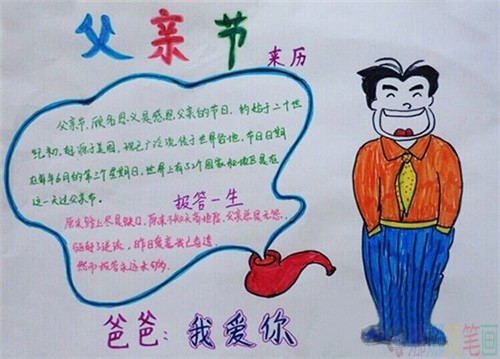 父亲节
来历
父亲节,顾名思义是感恩父亲的节日。约始于二十世
纪初,起源于美国,现已广泛流传于世界各地,节日日期
在每年6月的第三个星期日,世界上有52个国家和地区是在
这一天过父亲节。
报答一生
尽是缺口,原来不知 父亲总是无怨
昨日
报答永远太
爸爸:我爱你
笔画